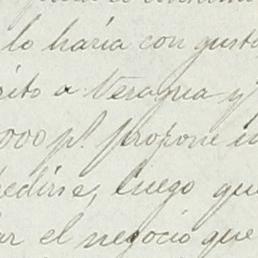 lo haría con gusto
a Veragua y
000 ps. propone
luego que
el negocio que